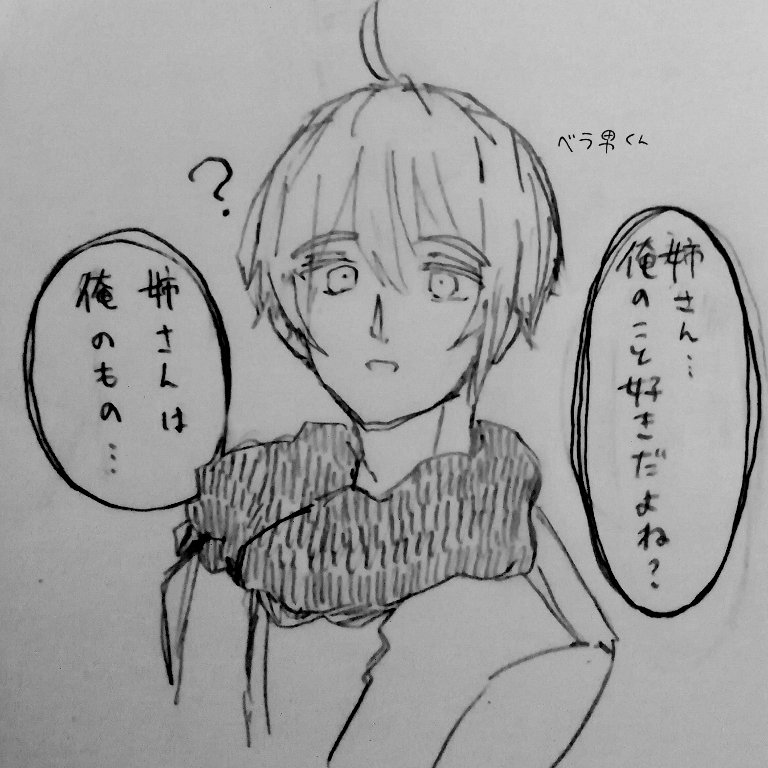 ベラ男くん
姉さん…
俺のこと好きだよね?
?
姉さんは
俺のもの…